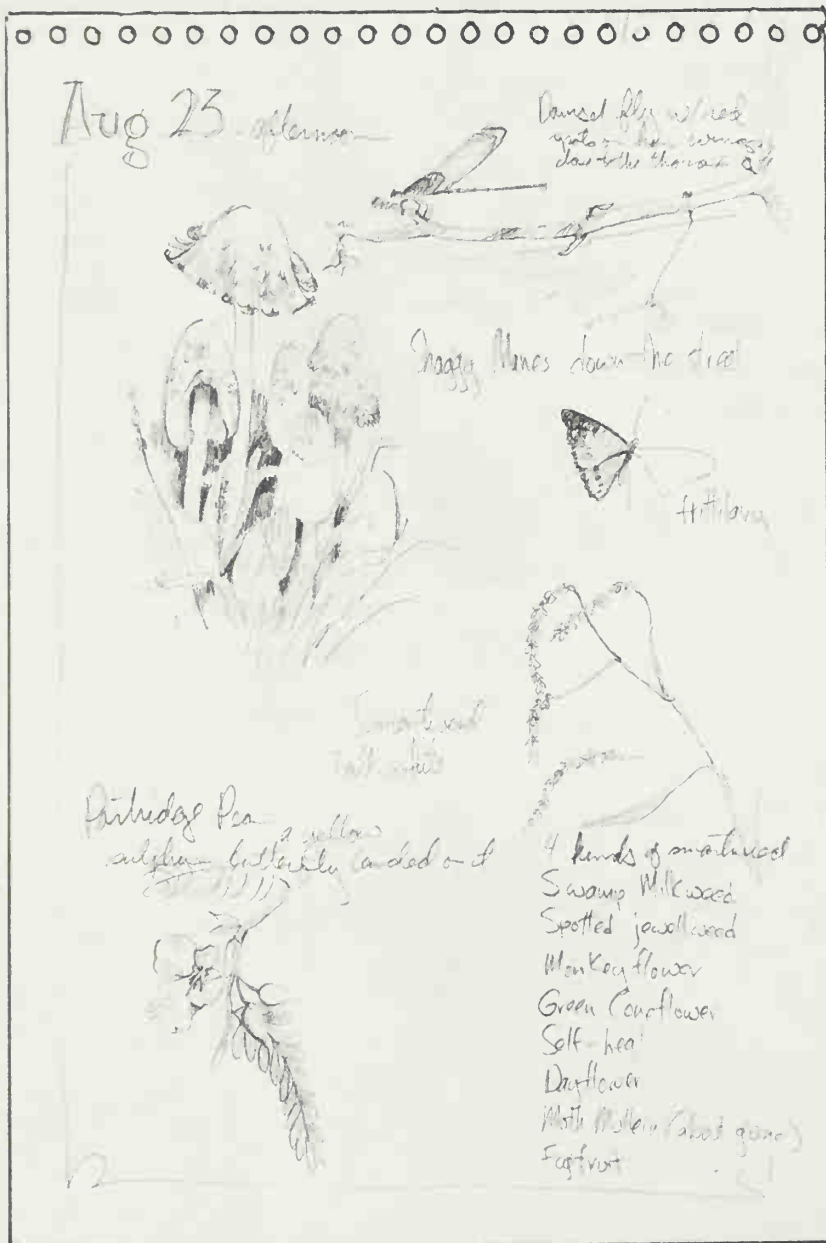 Aug 23 afternoon
Damsel fly w/ red
spots on her wings
close to the thorax
Shaggy Manes down the
frittilary
Smartweed
Partridge Pea a yellow
sulphur butterfly landed on it
4 kinds of smartweed
Swamp Milkweed
Spotted jewellweed
Monkeyflower
Green Coneflower
Self-heal
Dayflower
Moth Mullein (about gone)
Fogfruit